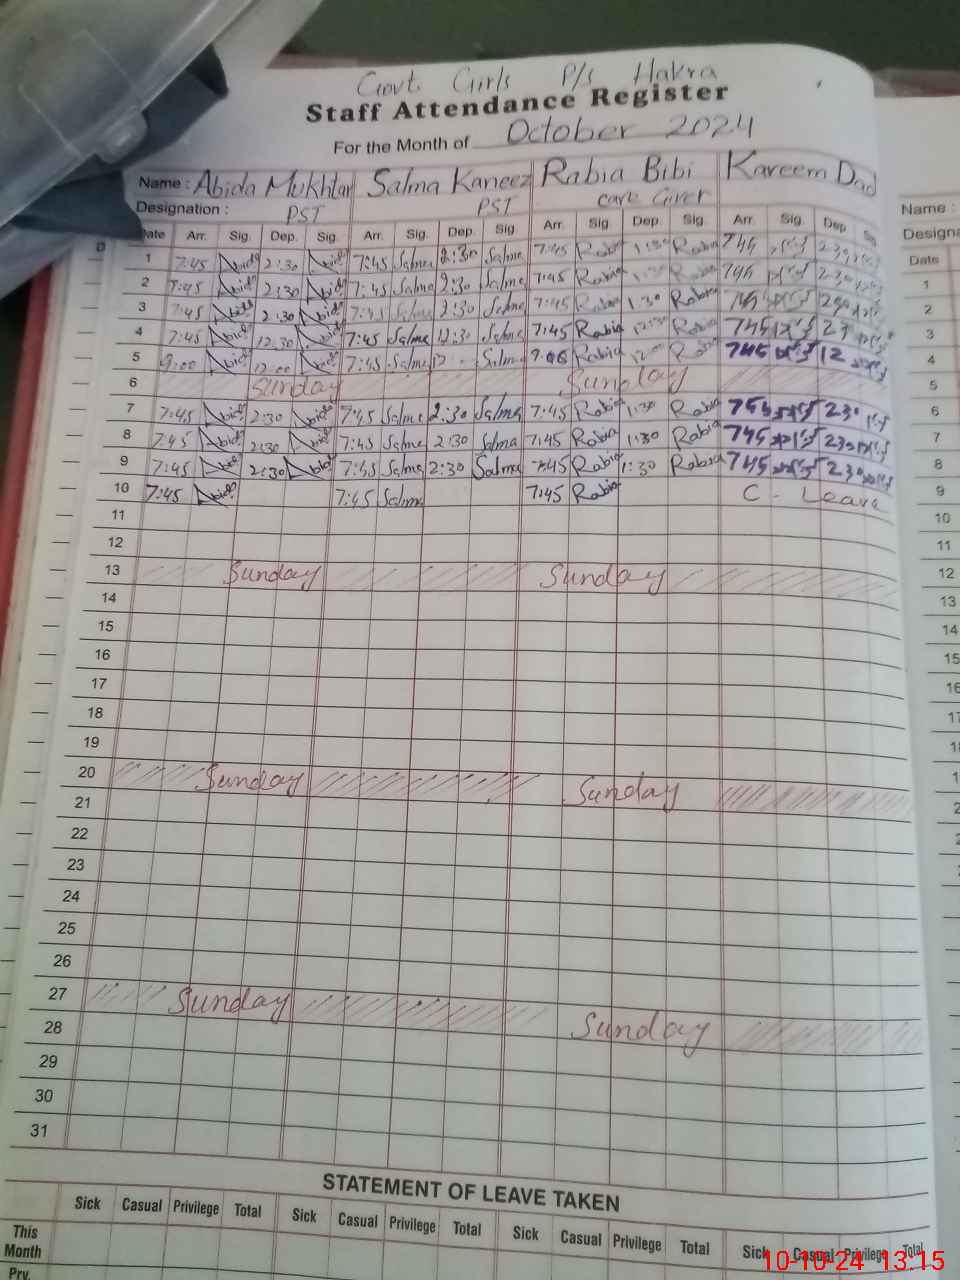 Govt. Girls P/s Hakra
Staff Attendance Register
For the Month of October 2024
Name : Abida Mukhtar Salma Kaneez Rabia Bibi Kareem Dad
Designation : PST PST care Giver
Date Arr. Sig. Dep. Sig. Arr. Sig. Dep. Sig. Arr. Sig. Dep. Sig. Arr. Sig. Dep.
1 7:45 Abida 2:30 Abida 7:45 Salma 2:30 Salma 7:45 Rabia 1:30 Rabia 745 230
2 7:45 Abida 2:30 Abida 7:45 Salma 2:30 Salma 7:45 Rabia 1:30 Rabia 745 230
3 7:45 Abida 2:30 Abida 7:45 Salma 2:30 Salma 7:45 Rabia 1:30 Rabia 745 230
4 7:45 Abida 12:30 Abida 7:45 Salma 12:30 Salma 7:45 Rabia 12:30 Rabia 745
5 9:00 Abida 12:00 Abida 7:45 Salma 12 Salma Rabia 12:00 Rabia 745 12
6 Sunday Sunday
7 7:45 Abida 2:30 Abida 7:45 Salma 2:30 Salma 7:45 Rabia 1:30 Rabia 745 230
8 7:45 Abida 2:30 Abida 7:45 Salma 2:30 Salma 7:45 Rabia 1:30 Rabia 745 230
9 7:45 Abida 2:30 Abida 7:45 Salma 2:30 Salma 7:45 Rabia 1:30 Rabia 745 230
10 7:45 Abida 7:45 Salma 7:45 Rabia C - Leave
11
12
13 Sunday Sunday
14
15
16
17
18
19
20 Sunday Sunday
21
22
23
24
25
26
27 Sunday Sunday
28
29
30
31
STATEMENT OF LEAVE TAKEN
Sick Casual Privilege Total Sick Casual Privilege Total Sick Casual Privilege Total Sick Casual Privilege Total
This
Month
Prv.
Name :
Date
1
2
3
4
5
6
7
8
9
10
11
12
13
14
15
16
10-10-24 13:15